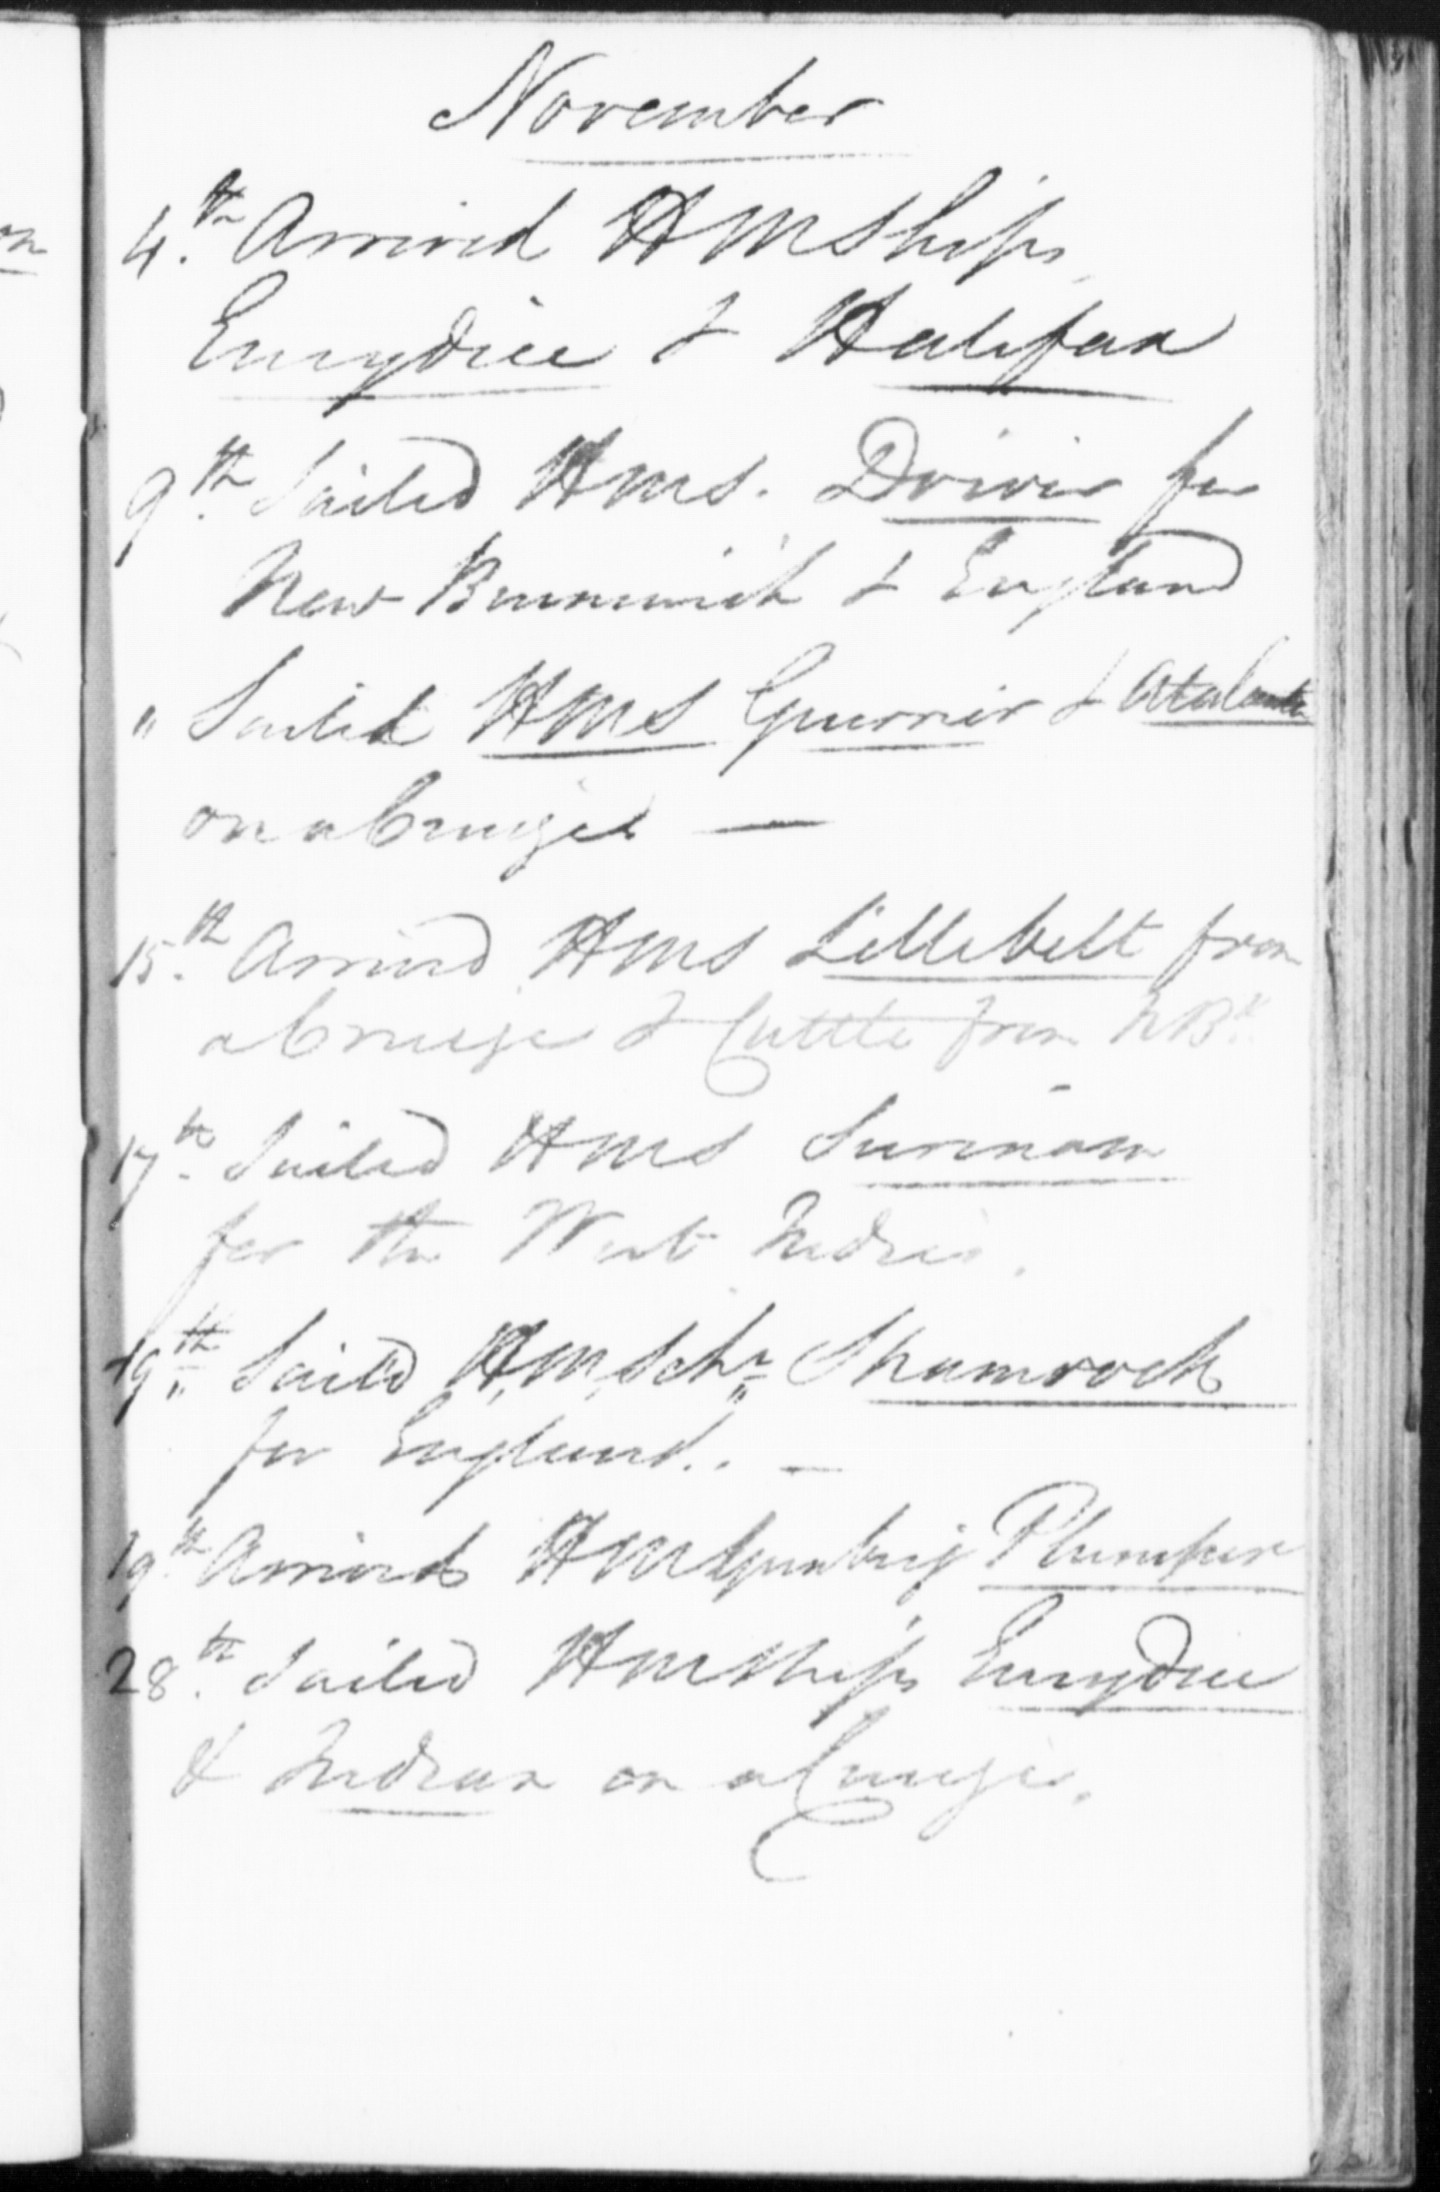 November
4th Arrived HMShips
Eurydice & Halifax
9th Sailed HMS. Driver for
New Brunswick & England
" Sailed HMS Guerrier & Atalante
on a Cruize —
15th Arrived HMS Lillebelt from
a Cruize & Cuttle from NBk
17th Sailed HMS Surinam
for the West Indies.
19th Sailed HM Schr Shamrock
for England. —
19th Arrived HM Gunbrig Plumper
28th Sailed HMShips Eurydice
& Indian on a Cruize.